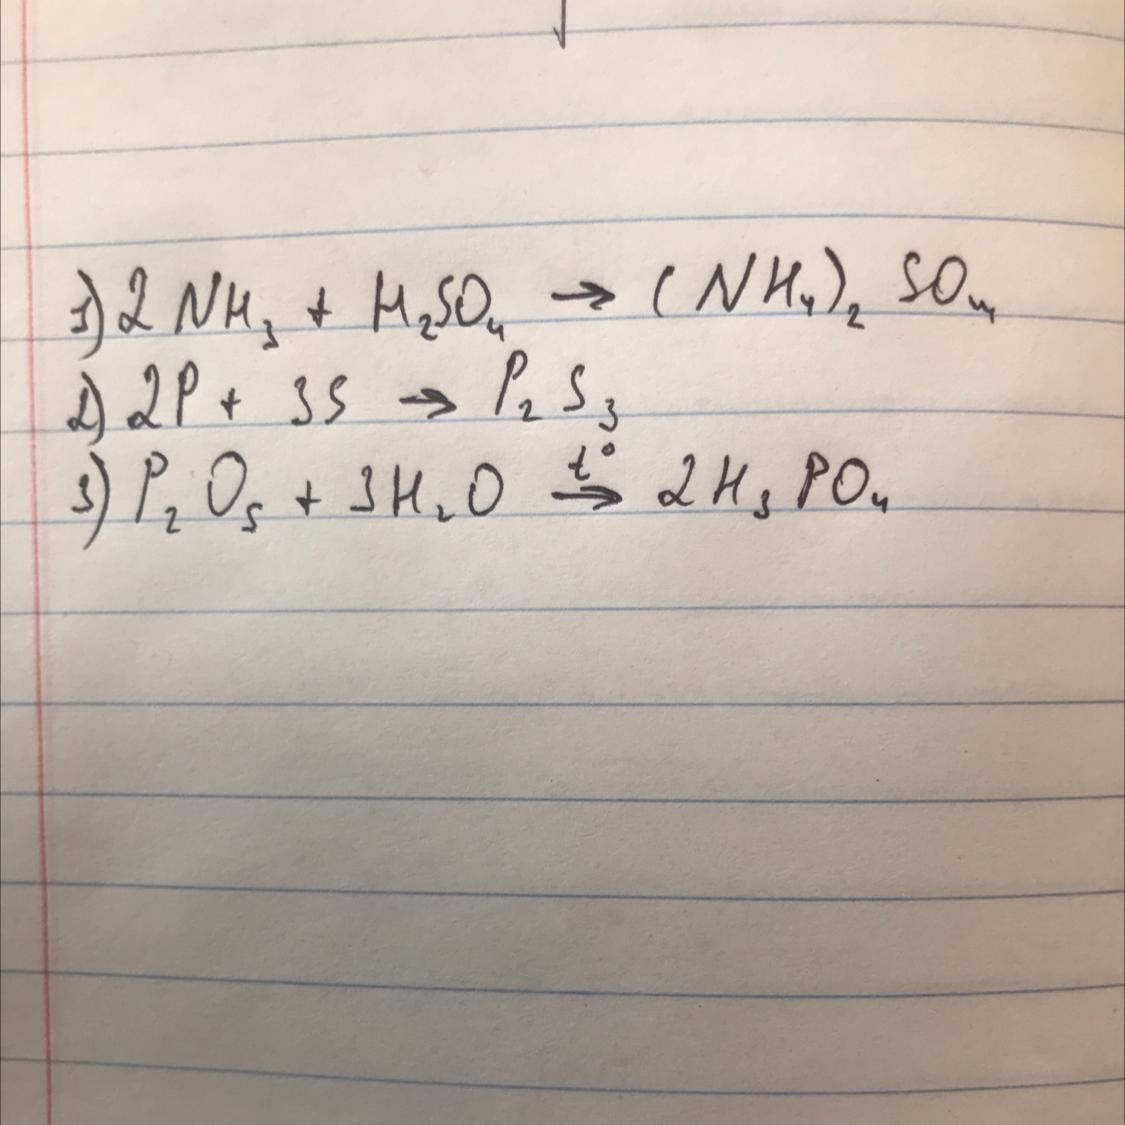 1) 2NH₃ + H₂SO₄ → (NH₄)₂SO₄
2) 2P + 3S → P₂S₃
3) P₂O₅ + 3H₂O →^t° 2H₃PO₄